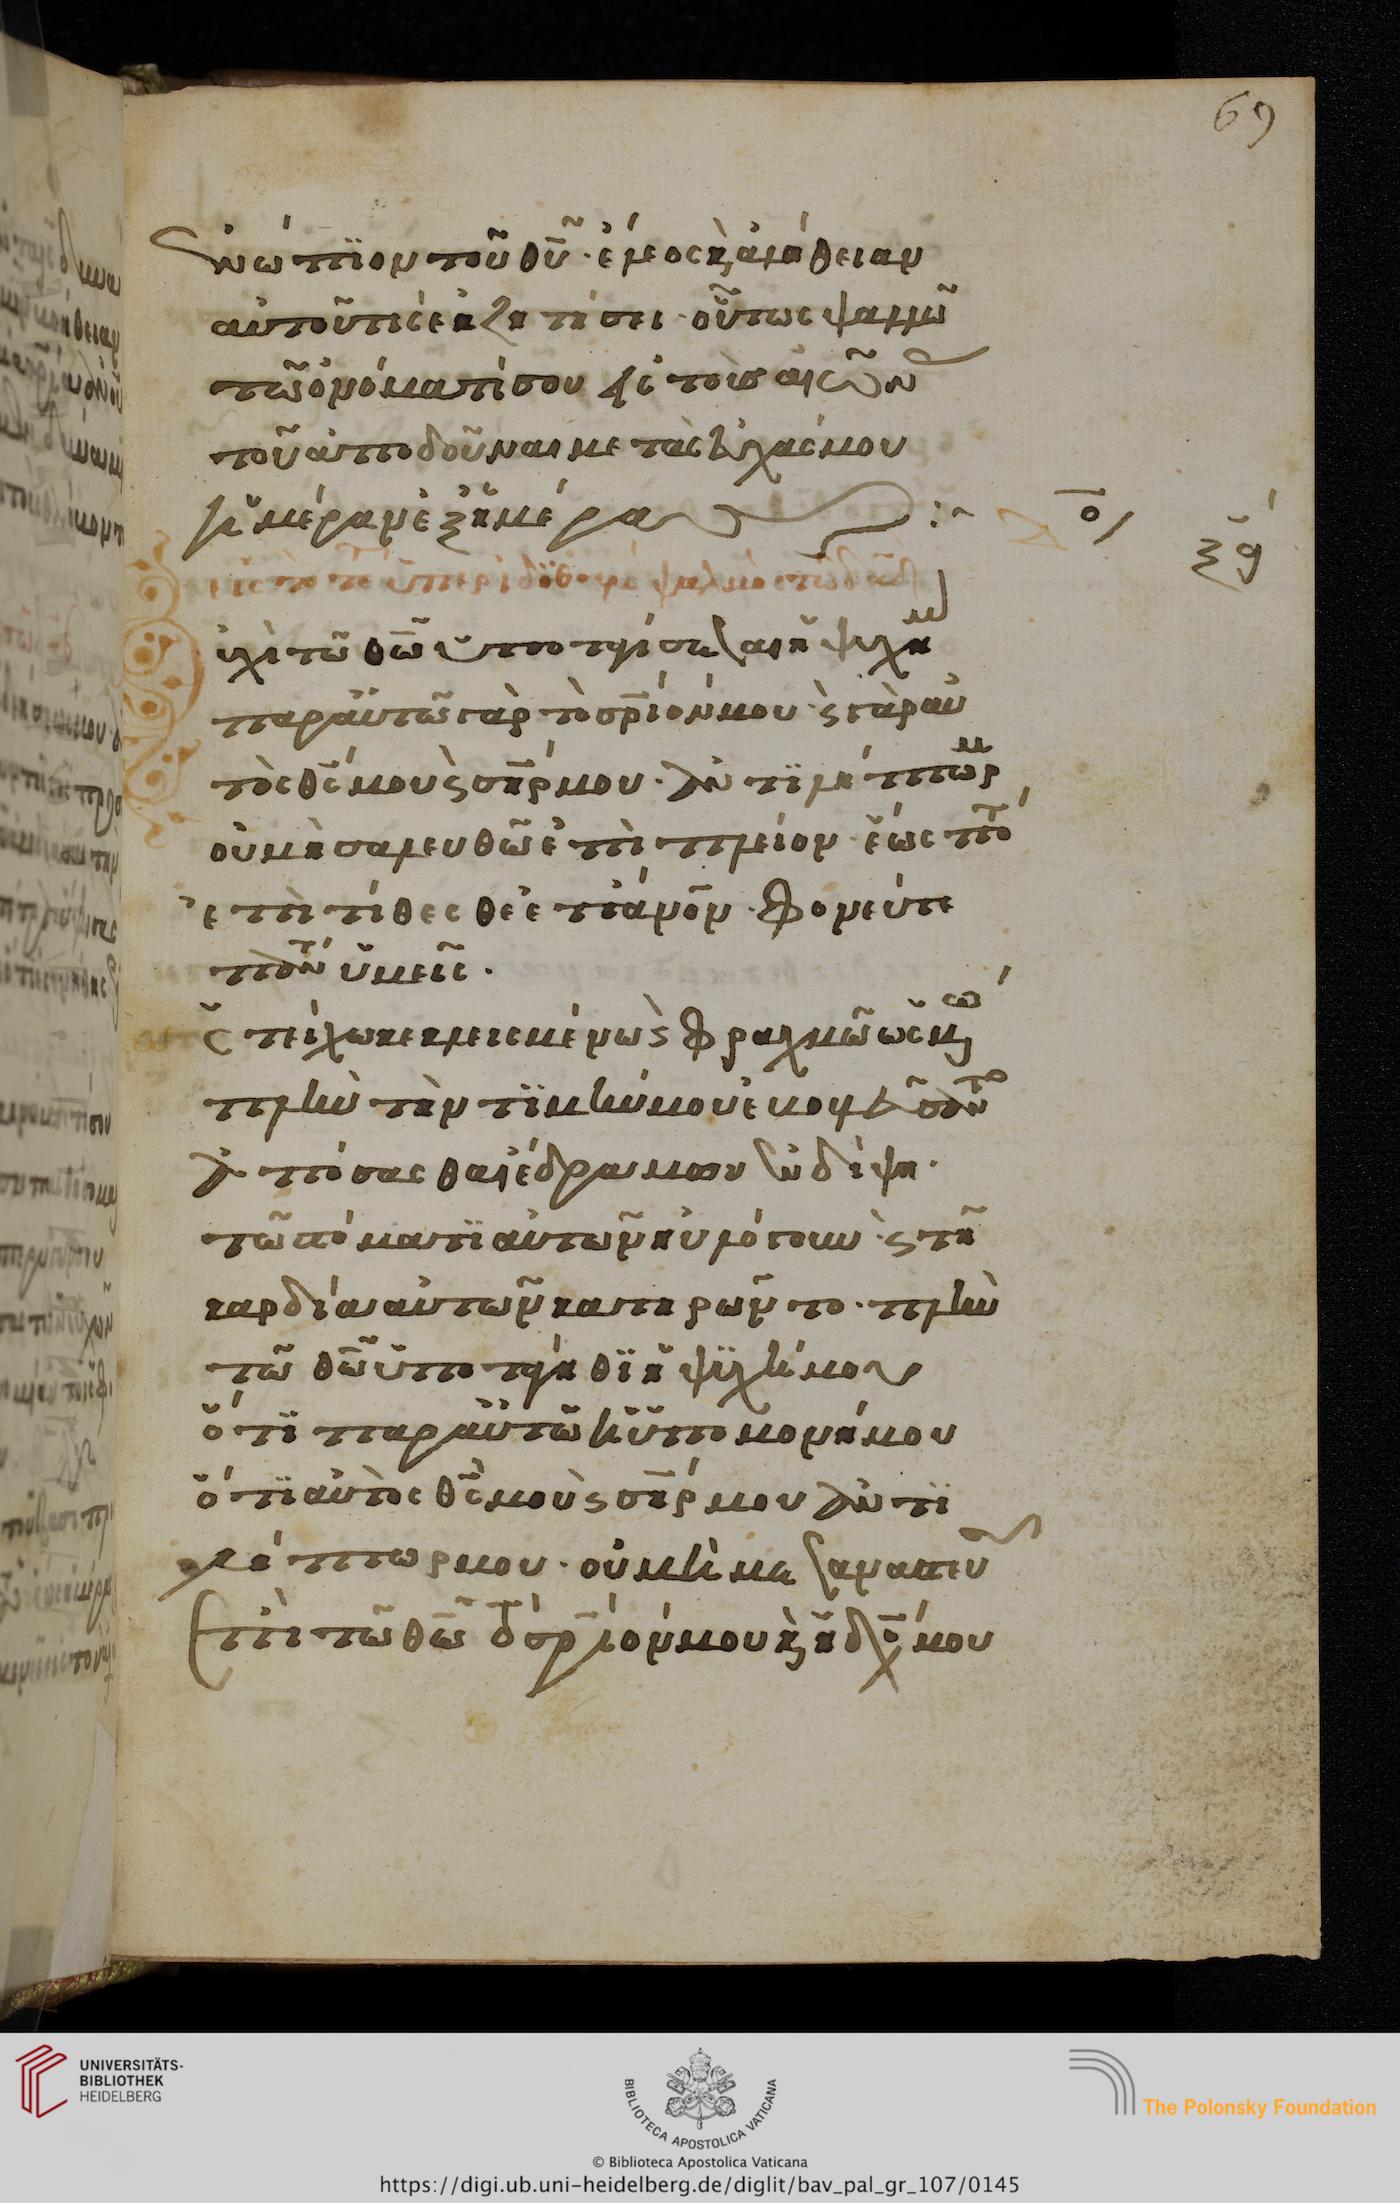 69
ἐνώπιον τοῦ θῦ · ἔλεος κ ἀλήθειαν
αὐτοῦ τίς ἐκζητήσει · οὕτως ψαλλῶ
τῶ ὀνόματί σου εἰς τοὺς αἰῶν
τοῦ ἀποδοῦναί με τὰς εὐχάς μου
ἡμέραν ἐξ ἡμέρας :~
ο
ξα
εἰς τὸ τέ ὑπὲρ ἰδϊθοὺμ ψαλμὸς τῶ δαδ
οὐχὶ τῶ θῶ ὑποταγήσεται ἡ ψυχή μ
παρ αὐτῶ γὰρ τὸ σρϊόν μου · κ γὰρ αὐ
τὸς θς μου κ σηρ μου · ἀντιλήπτωρ μ
οὐ μὴ σαλευθῶ ἐπὶ πλεῖον · ἕως πότ
ἐπιτίθεσθε ἐπ ἀνον · φονεύετε
πάντ ὑμεῖς ·
ὡς τείχω κεκλειμένω κ φραγμῶ ὠσμ
πλὴν τὴν τϊμήν μου ἐβουλεύσαντο
ἀπώσασθαι ἔδραμον ἐν δίψη ·
τῶ στόματϊ αὐτῶν εὐλόγουν · κ τῆ
καρδία αὐτῶν κατηρῶντο · πλὴν
τῶ θῶ ὑποτάγηθϊ ἡ ψϋχή μου
ὅτϊ παρ αὐτῶ ἡ ὑπομονή μου
ὅτϊ αὐτὸς θς μου κ σηρ μου ἀντϊ
λήπτωρ μου · οὐ μὴ μεταναστεύ
Ἐπὶ τῶ θῶ τὸ σρϊόν μου κ ἡ δόξα μου
UNIVERSITÄTS-
BIBLIOTHEK
HEIDELBERG
BIBLIOTECA APOSTOLICA VATICANA
The Polonsky Foundation
© Biblioteca Apostolica Vaticana
https://digi.ub.uni-heidelberg.de/diglit/bav_pal_gr_107/0145